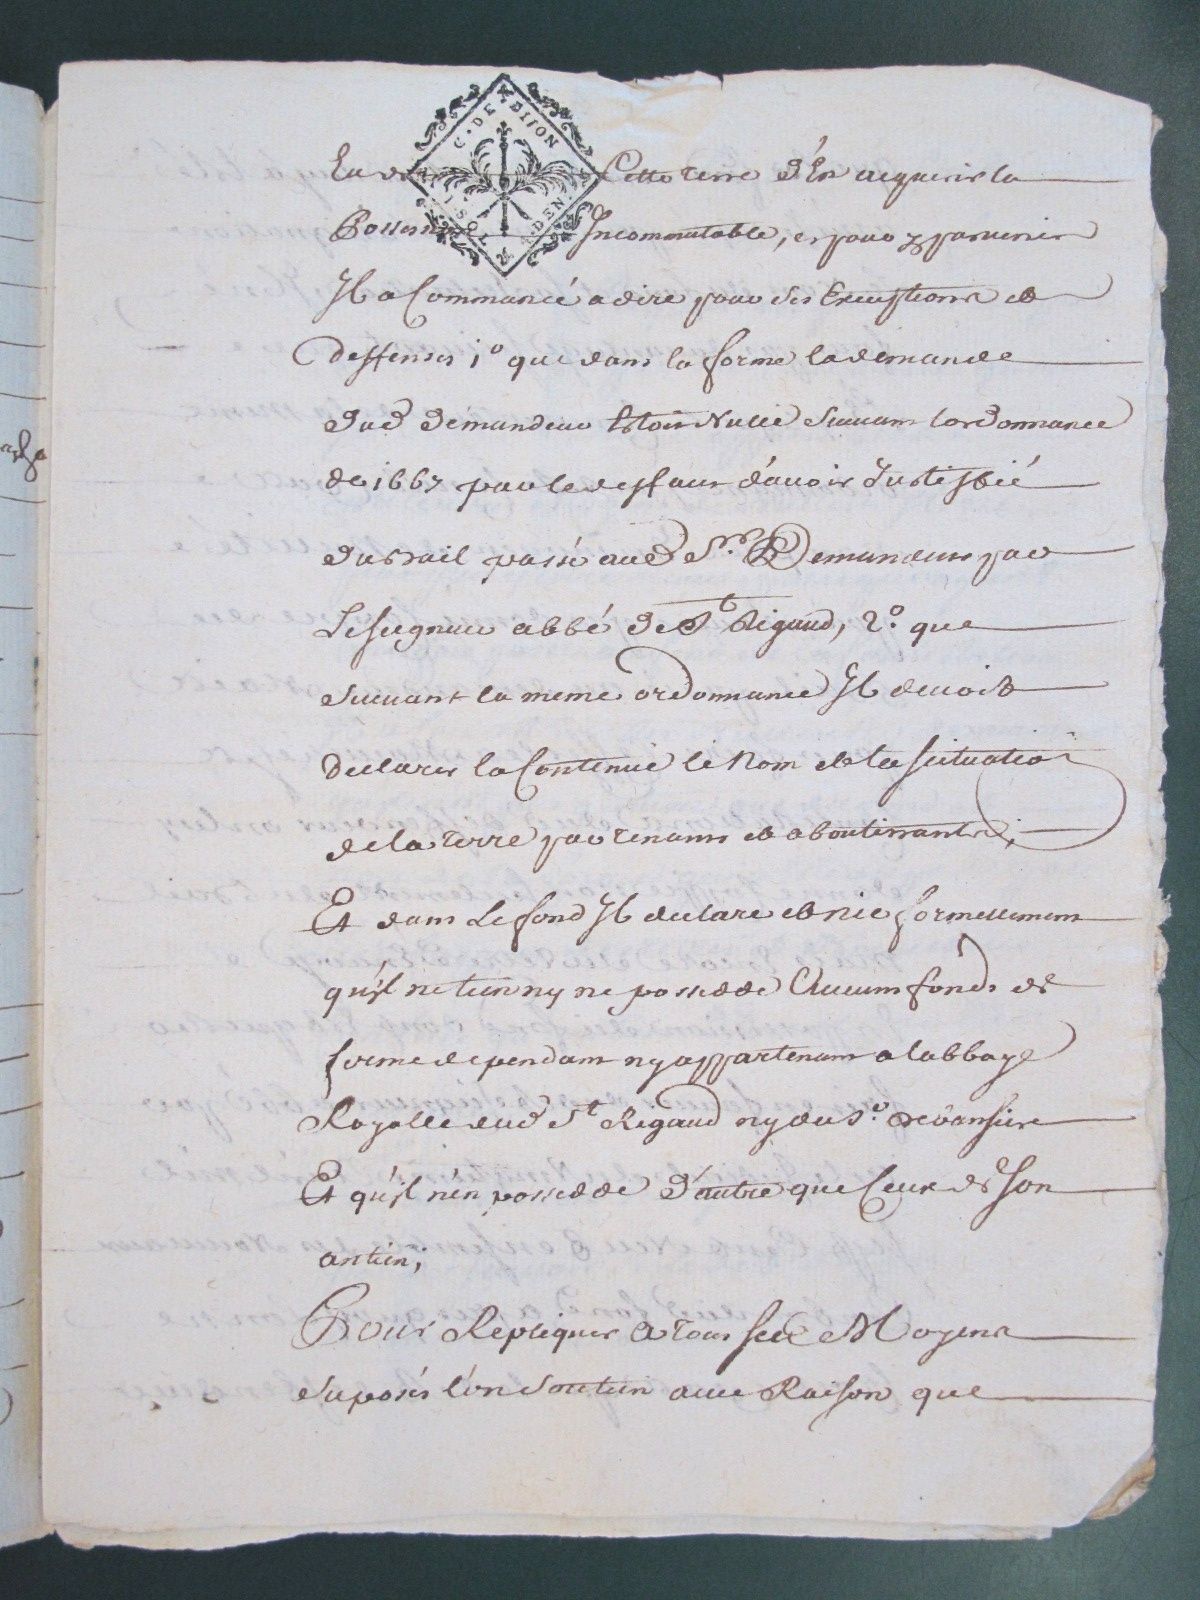 C. DE DIJON
SOL
DEN
cette terre d'En acquerir la
Possess Incommutable, et pour y parvenir
Il a Commancé a dire pour ses Exceptions et
deffenses 1o que dans la forme la demande
dud demandeur Estoit Nulle suivant lordonnance
de 1667 par le deffaut d'avoir Justiffié
du bail passé aud Sr. Demandeur par
Le seigneur abbé de St Rigaud, 2o. que
suivant la meme ordonnance Il devoit
declarer la Contenue le Nom et la scituation
de la terre par tenans et aboutissants;
Et dans Le fond Il declare et nie formellement
qu'il ne tient ny ne possedde Aucuns fonds de
ferme dependant ny appartenant a labbaye
Royalle dud St Rigaud ny du Sr.
Et qu'il n'en possedde d'autre que Ceux de son
antien;
Pour Repliquer a tous ses Moyens
suposés l'on soutien avec Raison que